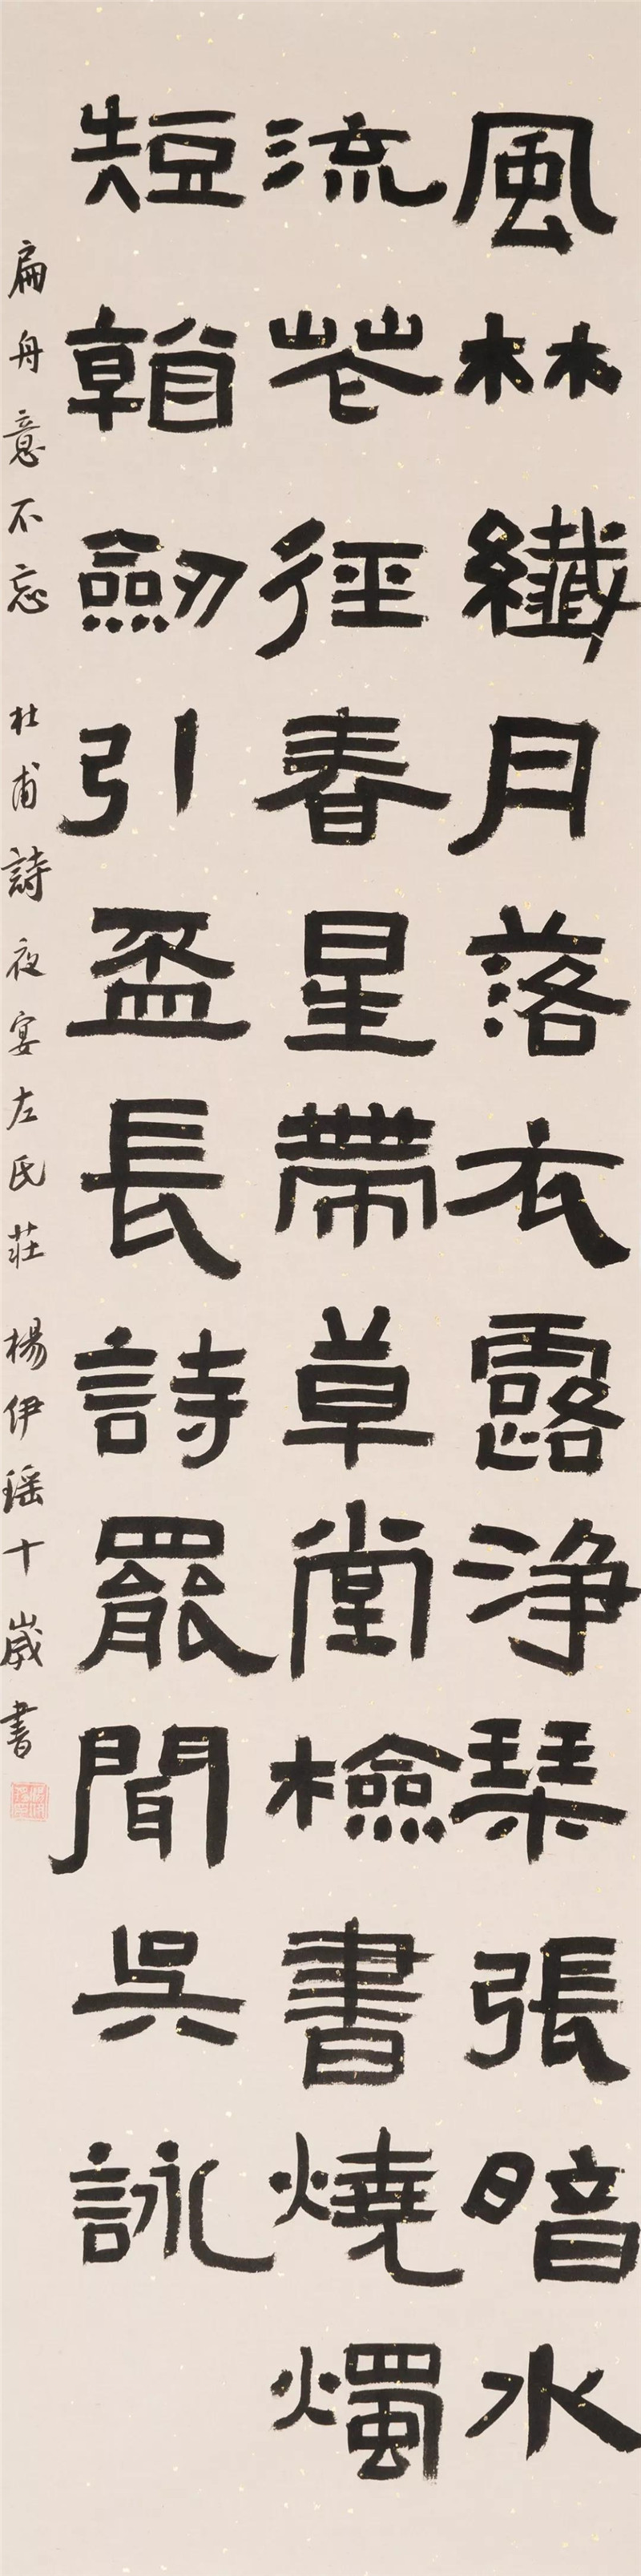 風林纖月落衣露浄琹張暗水
流花徑春星帶草堂檢書燒燭
短看劒引盃長詩罷聞吳詠
扁舟意不忘 杜甫詩夜宴左氏莊 楊伊瑶十歲書